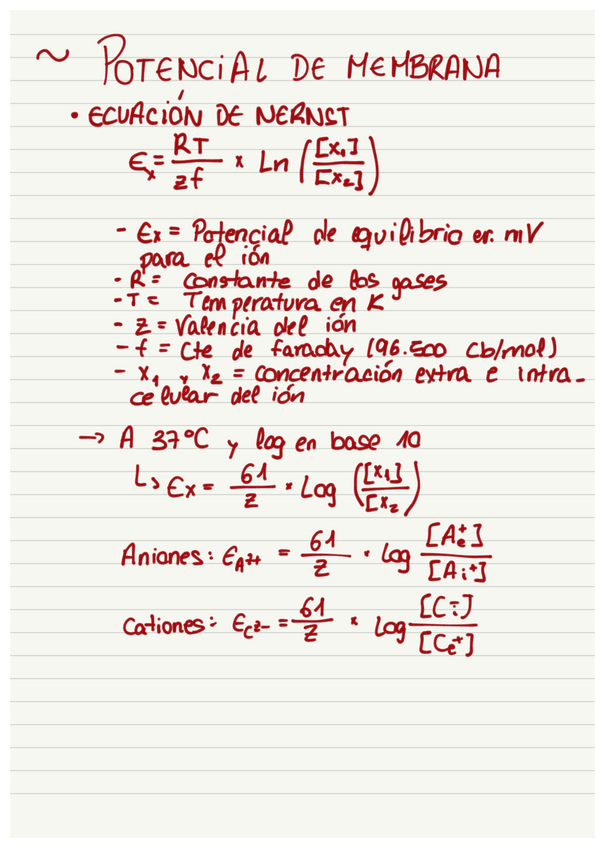 ~ POTENCIAL DE MEMBRANA
• ECUACIÓN DE NERNST
Ex = RT/zf × Ln ([x1]/[x2])
- Ex = Potencial de equilibrio en mV
para el ión
- R = constante de los gases
- T = Temperatura en K
- z = Valencia del ión
- f = Cte de faraday (96.500 Cb/mol)
- x1 y x2 = concentración extra e intra-
celular del ión
→ A 37°C y log en base 10
↳ Ex = 61/z · Log ([x1]/[x2)
Aniones: EA z+ = 61/z · log [Ae+]/[Ai+]
Cationes: EC z- = 61/z × Log [Ci-]/[Ce+]